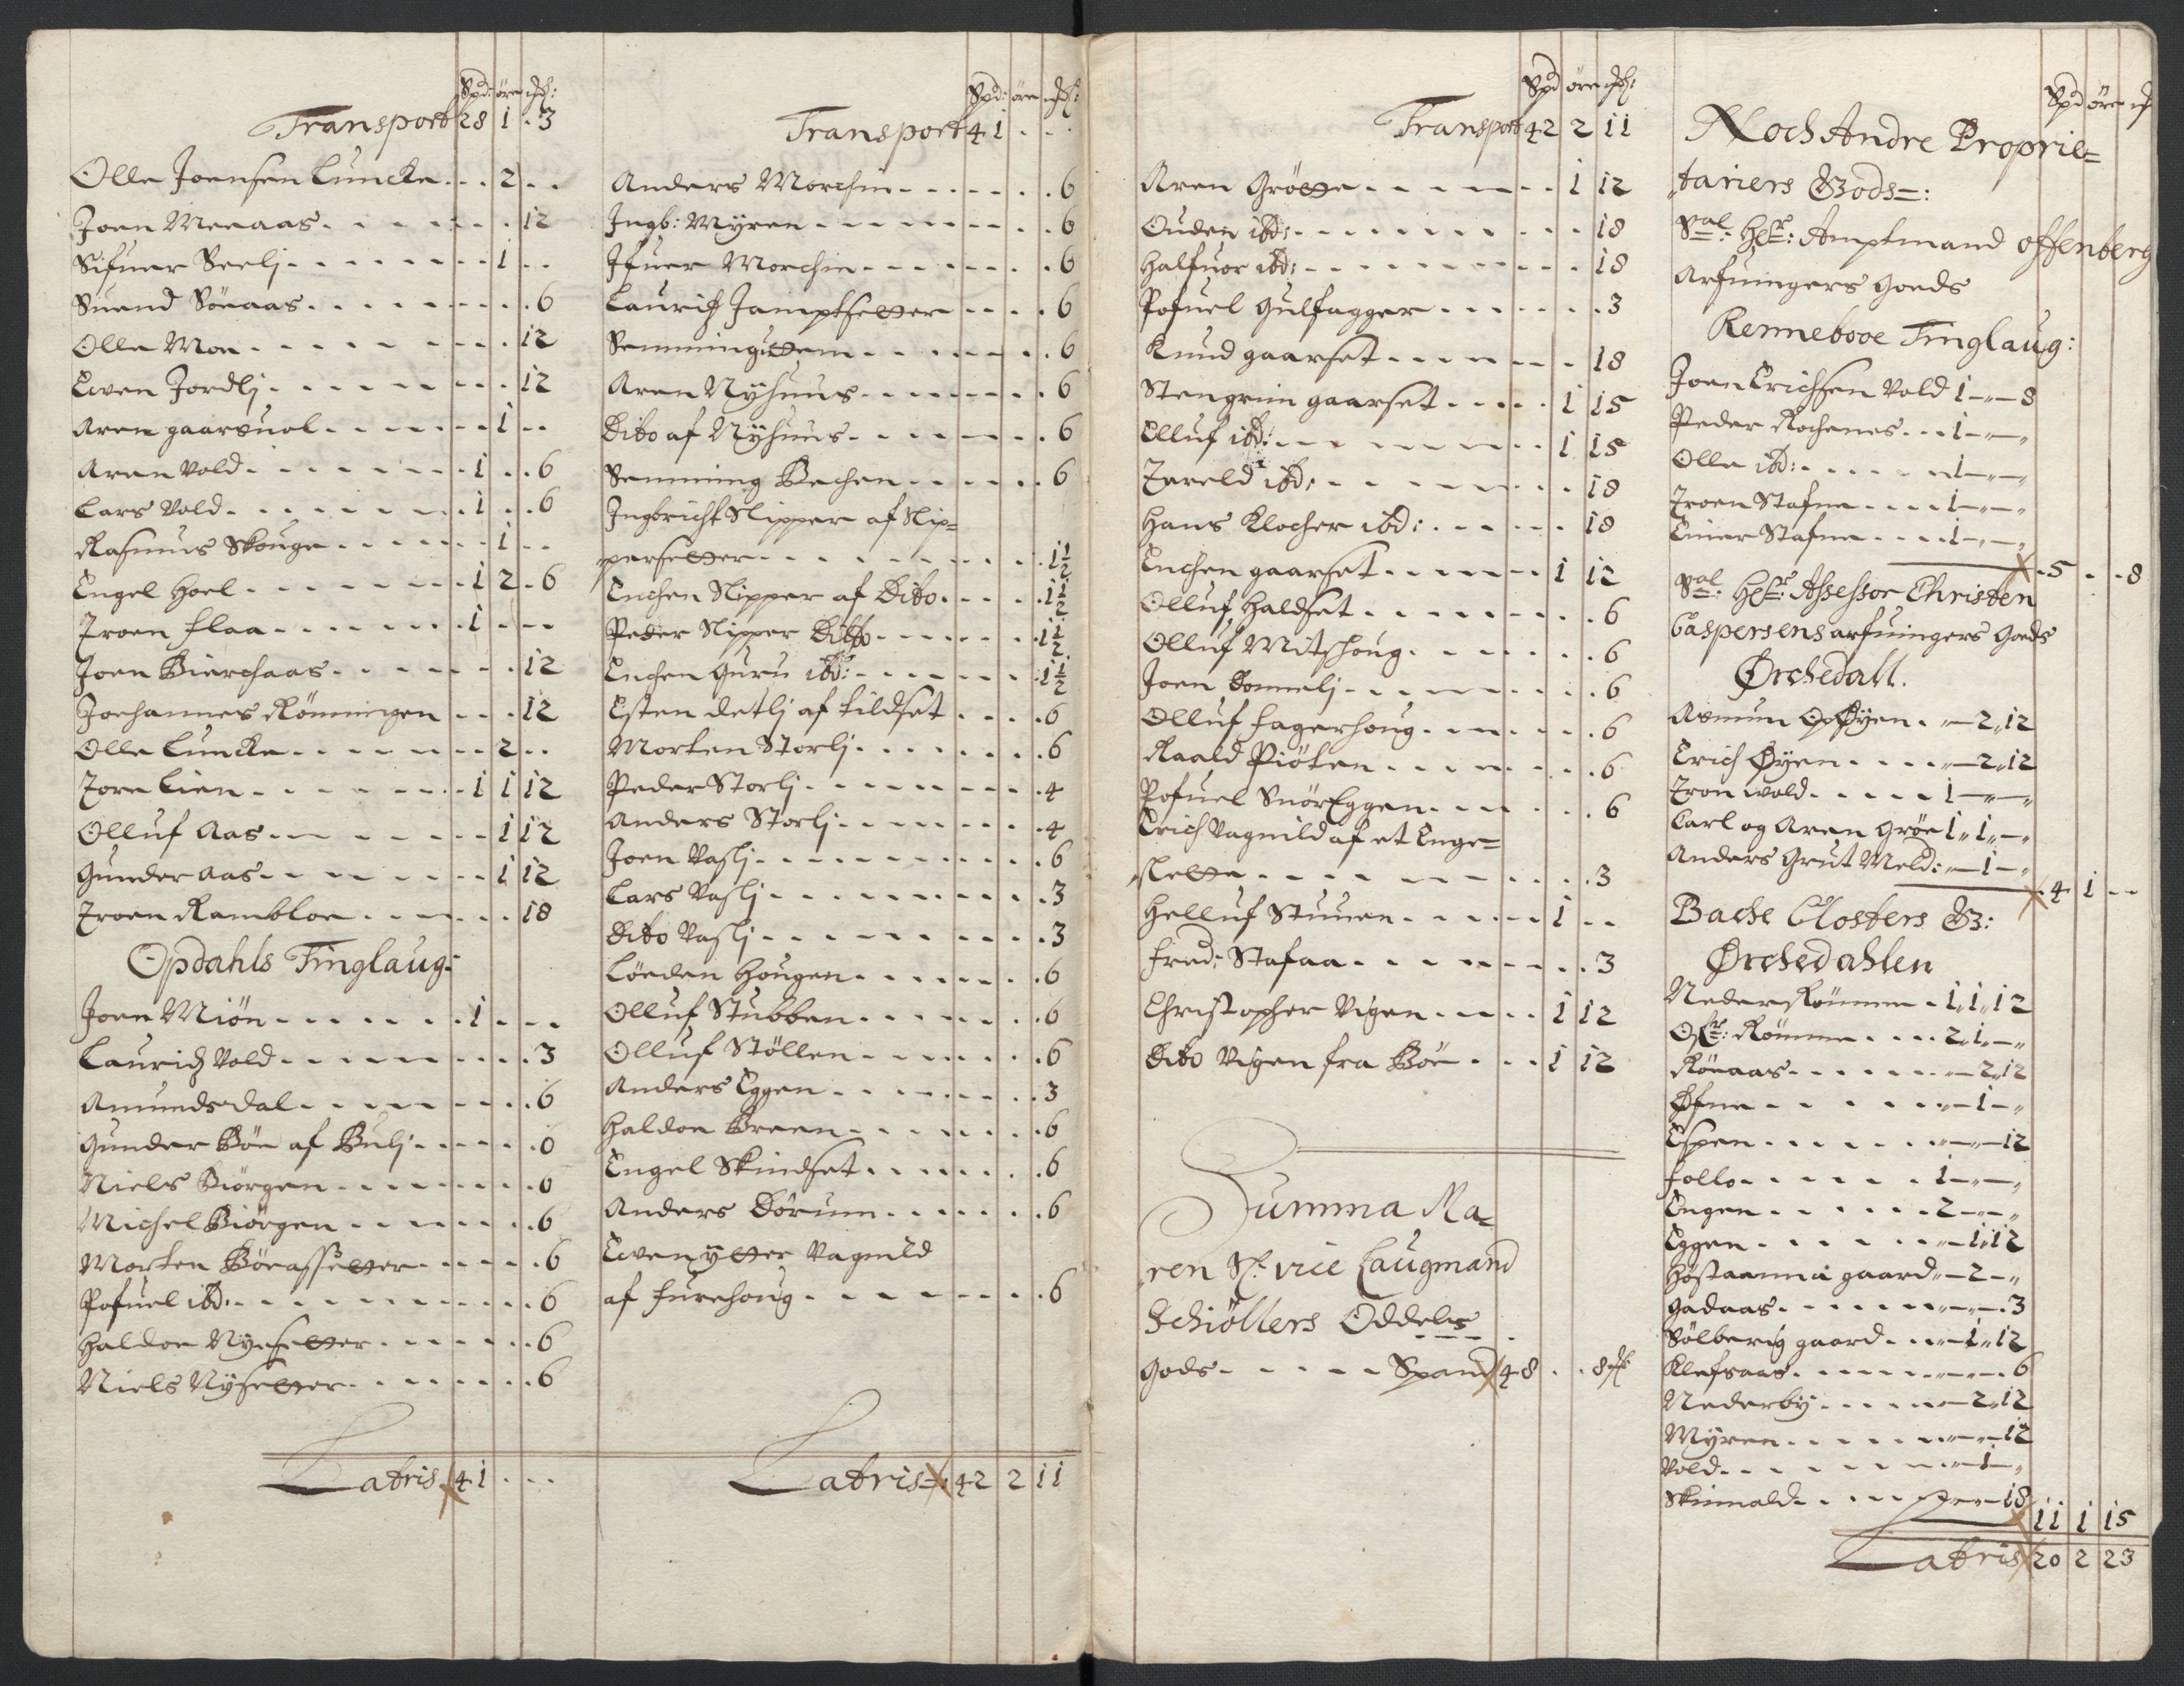 Spd: öre
Transport 28 1 . 3
Olle Joensen Luncke . . . 2 . .
Joen Meeaas . . . 12
Sifuer Seelj . . . 1 . .
Suend Söeaas . . . 6
Olle Moe . . . 12
Ewen Jordlj . . . 12
Aren gaarsuol . . . 1 . .
Aren Vold . . . 1 . . 6
Lars Vold . . . 1 . . 6
Rasmus Skouge . . . 1 . .
Engel Hoel . . . 1 2 . 6
Troen Flaa . . . 1 . . .
Joen Bierchaas . . . 12
Joehannes Rönningen . . . 12
Olle Luncke . . . 2 . .
Tore Lien . . . 1 1 12
Olluf Aas . . . 1 12
Gunder Aas . . . 1 12
Troen Rambloe . . . 18
Opdahls Tinglaug:
Joen Miön . . . 1 . . .
Lauridz Vold . . . 3
Amunds dal . . . 6
Gunder Böe af Bulj . . . 6
Niels Biörgen . . . 6
Michel Biörgen . . . 6
Morten Böeassetter . . . 6
Pofuel ibd: . . . 6
Haldoe Nyesetter . . . 6
Niels Nysetter . . . 6
Latris 41 . . .
Spd: öre
Transport 41 . . .
Anders Morchen . . . 6
Ingb: Myren . . . 6
Jfuer Morchen . . . 6
Lauridz Jamptsetter . . . 6
Semming . . . 6
Aren Nyhuus . . . 6
Dito af Nyhuus . . . 6
Semming Bechen . . . 6
Ingbricht Slipper af Slip=
persetter . . . 1 1/2
Enchen Slipper af Dito . . . 1 1/2
Peder Slipper Ditto . . . 1 1/2
Enchen Guru ibd: . . . 1 1/2
Esten detlj af tildset . . . 6
Morten Storlj . . . 6
Peder Storlj . . . 4
Anders Storlj . . . 4
Joen Vaslj . . . 6
Lars Vaslj . . . 3
Dito Vaslj . . . 3
Löeden Hougen . . . 6
Olluf Stubben . . . 6
Olluf Stöllen . . . 6
Anders Eggen . . . 3
Haldoe Breen . . . 6
Engel Skindset . . . 6
Anders Dörum . . . 6
Ewen ytter Vagnild
af furehoug . . . 6
Latris 42 2 11
Spd öre
Transport 42 2 11
Aren Grötte . . . 1 12
Ouden ibd: . . . 18
Halfuor ibd: . . . 18
Pofuel Gulfagger . . . 3
Knud gaarset . . . 18
Stengrim gaarset . . . 1 15
Elluf ibd: . . . 1 15
Tareld ibd: . . . 18
Hans Klocher ibd: . . . 18
Enchen gaarset . . . 1 12
Olluf Haldset . . . 6
Olluf Mitshoug . . . 6
Joen Donnelj . . . 6
Olluf fagerhoug . . . 6
Raald Piöten . . . 6
Pofuel SnörEggen . . . 6
Erich Vagnild af et Enge=
slette . . . 3
Helluf Stuuen . . . 1 . .
Fred: Stafaa . . . 3
Christopher Vigen . . . 1 12
Dito Vigen fra Böe . . . 1 12
Summa Ma=
ren Sl: vice Laugmand
Schiöllers Oddels
Gods . . . Spand 48 . . 8
Spd öre
Noch Andre Proprie=
tariers Gods=:
Sal: Hr: Amptmand Offenberg
Arfuingers Goeds
Rennebooe Tinglaug:
Joen Erichsen Vold 1 - " - 8
Peder Rochenes . . . 1 - " - "
Olle ibd: . . . 1 - " - "
Troen Stafne . . . 1 - " - "
Einer Stafne . . . 1 - " - "
5 . . 8
Sal: Hr: Assessor Christen
Caspersens arfuingers Goeds
Örchedall.
Asmun Opöyen . " - 2 " 12
Erich Öyen . . . " - 2 " 12
Tron wold . . . 1 - " - "
Carl og Aren Gröe 1 " 1 " - "
Anders Grut Meld: " - 1 - "
4 1 - -
Bache Closters G:
Örchedahlen
Neder Römme . 1 " 1 " 12
Ofr: Römme . . . 2 " 1 " - "
Röeaas . . . " - 2 " 12
Öfne . . . " - 1 - "
Espen . . . " - " - 12
Follo . . . 1 - " - "
Engen . . . 2 - " - "
Eggen . . . " - 1 " 12
Höstaanna gaard " - 2 - "
Gadaas . . . " - " - 3
Sölberig gaard . . . " - 1 " 12
Klefsaas . . . " - " - 6
Nederby . . . " - 2 " 12
Myren . . . " - " - 12
Vold . . . " - 1 - "
Skinnald . . . " - " - 18
11 1 15
Latris 20 2 23